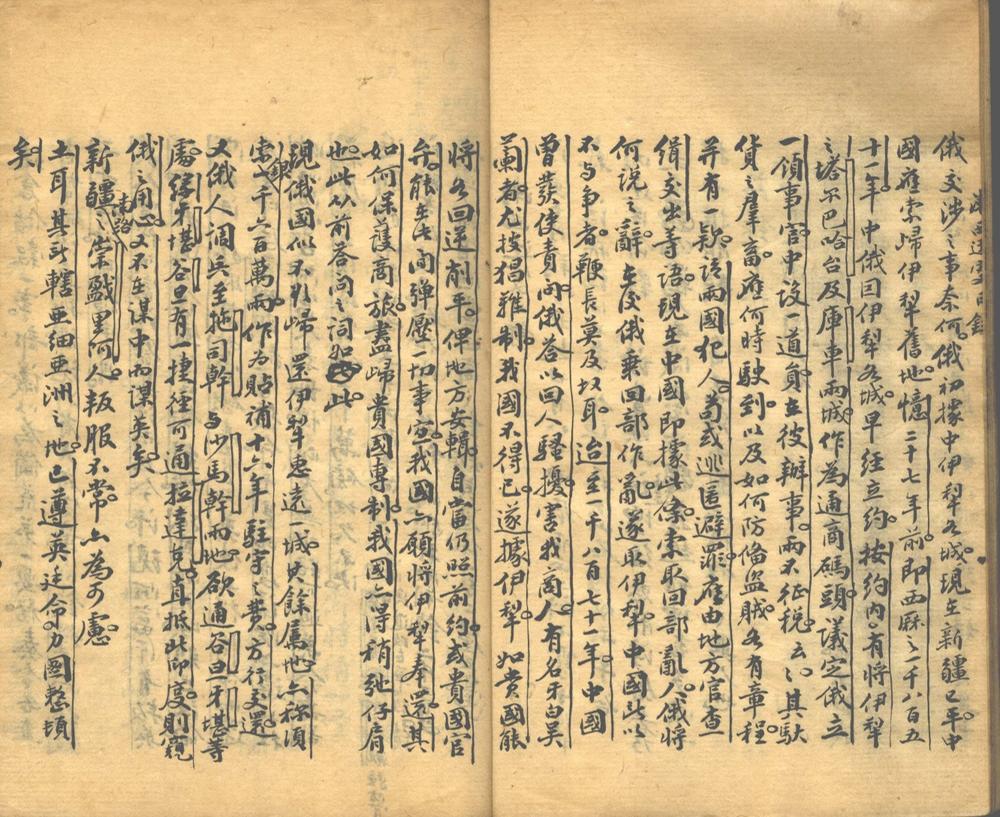 俄交涉之事奈何俄初據中伊犁各城現在新疆已平中
國應索歸伊犁舊地憶二十七年前即西厤一千八百五
十一年中俄因伊犁各城早經立約按約內有將伊犁
之塔尔巴哈台及庫車兩城作為通商碼頭議定俄立
一領事官中設一道員立彼辦事兩不征税云云其馱
貨之羣畜應何時駛到以及如何防偹盜賊各有章程
并有一欵認兩國犯人苟或逃匿避罪應由地方官查
緝交出等語現在中國即據此條索取回部亂人俄將
何說之辭在後俄乘回部作亂遂取伊犁中國此以
不与争者鞭長莫及攷耳迨至一千八百七十一年中國
曾發使責问俄答以回人騷擾害我商人有名牙白吴
蘭者尤披猖難制我國不得已遂據伊犁如貴國能
將各回逆削平俾地方安輯自當仍照前約或貴國官
兵能在此间弹壓一切事宜我國亦願將伊犁奉還其
如何保護商旅盡歸貴國專制我國亦得稍弛仔肩
也此从前答问之詞如此
現俄國似不引歸還伊犁惠遠一城其餘属地亦称須
索銀一千六百萬兩作为貼補十六年駐守之費方行交還
又俄人调兵至拖司幹与沙馬幹兩地欲通谷旦牙堪等
處緣牙堪谷旦有一捷徑可通拉達克直抵北印度則窺
俄之用心又不在謀中而謀英矣
新疆之南路崇戲里何人叛服不常亦為可慮
土耳其所轄亜細亜洲之地已遵英廷命力圖整頓
矣